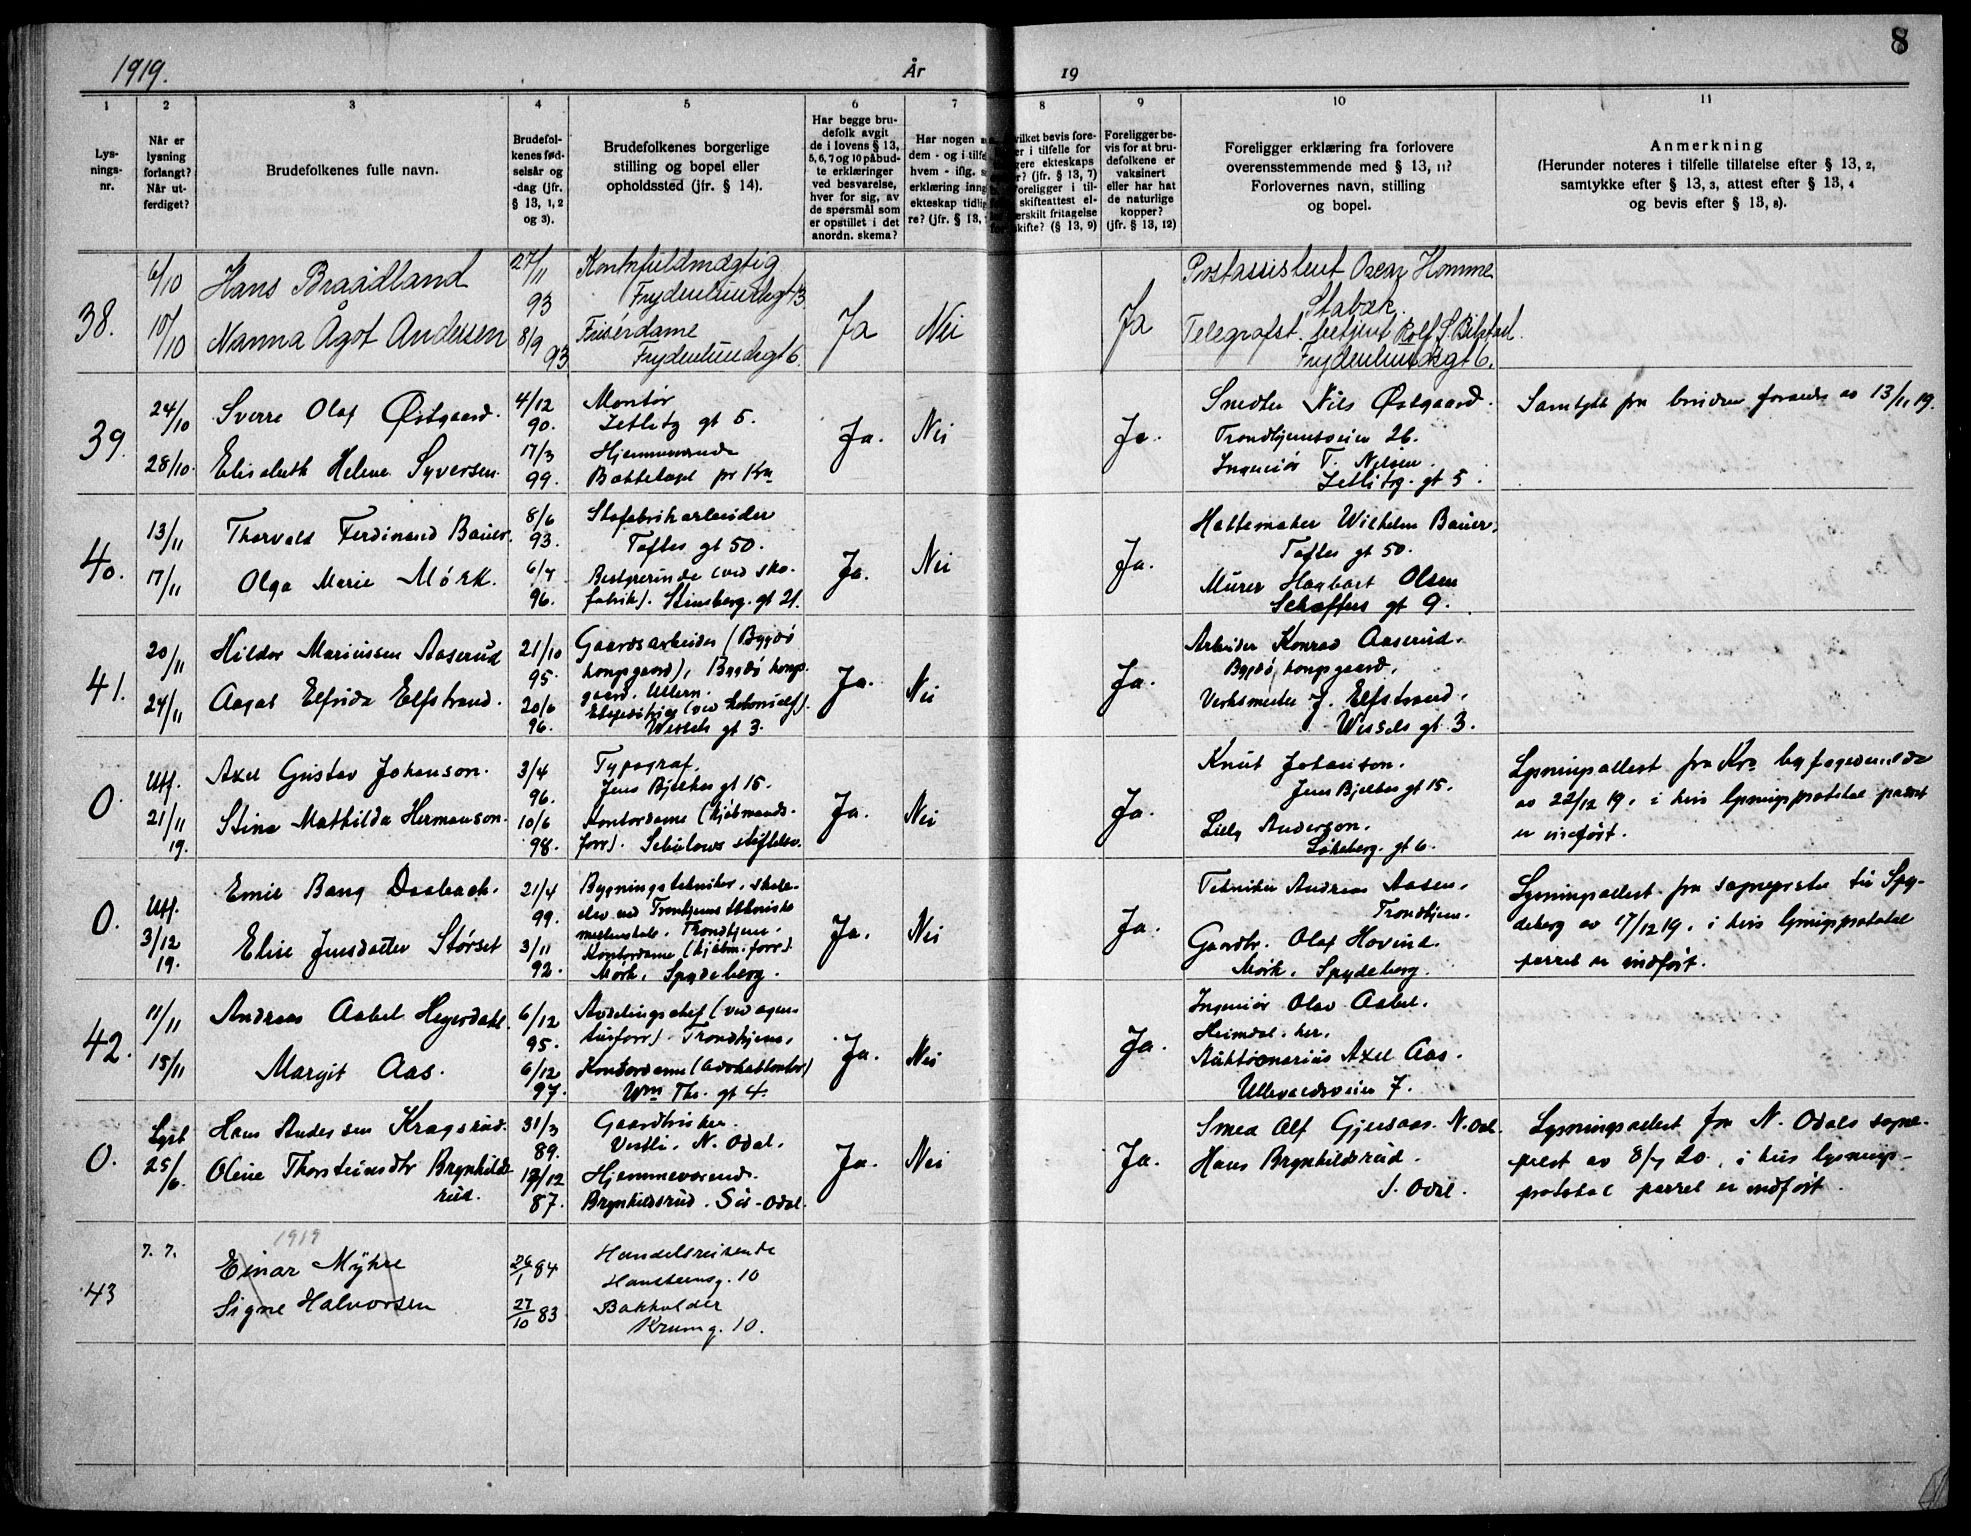 1919.
År
19
8
1 2 3 4 5 6 7 8 9 10 11
Lys-
nings-
nr.
Når er
lysning
forlangt?
Når ut-
ferdiget?
Brudefolkenes fulle navn.
Brudefol-
kenes fød-
selsår og
-dag (jfr.
§ 13, 1, 2
og 3).
Brudefolkenes borgerlige
stilling og bopel eller
opholdssted (jfr. § 14).
Har begge bru-
defolk avgit
de i lovens § 13,
5, 6, 7 og 10 påbud-
te erklæringer
ved besvarelse,
hver for sig, av
de spørsmål som
er opstillet i det
anordn. skema?
Har nogen
dem - og i tilfe
hvem - iflg.
erklæring inng
ekteskap tidlig
re? (jfr. § 13,
vilket bevis fore-
er i tilfelle for
gere ekteskaps
r? (jfr. § 13, 7)
Foreligger i til-
skifteattest el-
erskilt fritagelse
skifte? (§ 13, 9)
Foreligger be-
vis for at bru-
defolkene er
vaksinert
eller har hat
de naturlige
kopper?
(jfr. § 13, 12)
Foreligger erklæring fra forlovere
overensstemmende med § 13, 11?
Forlovernes navn, stilling
og bopel.
Anmerkning
(Herunder noteres i tilfelle tillatelse efter § 13, 2,
samtykke efter § 13, 3, attest efter § 13, 4
og bevis efter § 13, 8).
38.
6/10
10/10
Hans Braadland
Nanna Ågot Andersen
27/11
93
8/9
93
Kontrfuldmægtig
Frydenlundsgt 13
Frisérdame
Frydenlundsgt 6.
Ja
Nei
Ja
Postassistent Oscar Homme
Stabæk.
Telegrafst. betjent Rolf S. Bilstad.
Frydenlundsgt 6.
39.
24/10
28/10.
Sverre Olaf Østgaard.
Elisabeth Helene Syversen.
4/12
90.
17/3
99.
Montør
Zetlitz gt 5.
Hjemmeværende
Bakkelaget pr Kra
Ja.
Nei
Ja.
Smed Nils Østgaard.
Trondhjemsveien 26.
Ingeniør T. Nilsen.
Zetlitz. gt 5.
Samtykke fra brudens av 13/11 19.
40.
13/11
17/11
Thorvald Ferdinand Bauer.
Olga Marie Mørk.
8/6
93.
6/7
96.
Skofabrikarbeider
Toftes gt 50.
Bestyrerinde (ved sko-
fabrik). Stensberg. gt 21.
Ja.
Nei
Ja.
Hattemaker Wilhelm Bauer,
Toftes gt 50.
Murer Hagbart Olsen
Schæffers gt 9.
41.
20/11
24/11
Hildor Mariussen Aaserud
Aagot Elfrida Elfstrand.
21/10
95.
20/6
96.
Gaardsarbeider (Bygdø
kongsgaard), Bygdø kongs-
gaard. Ullern.
Ekspeditrice (ved kolonialf).
Wessels gt 3.
Ja.
Nei
Ja.
Arbeider Konrad Aaserud.
Bygdø kongsgaard,
Verksmester J. Elfstrand,
Wessels gt 3.
0.
Utf.
21/11
19.
Axel Gustav Johanson.
Stina Mathilda Hermanson.
3/4
96.
10/6
98.
Typograf.
Jens Bjelkes gt 15.
Kontordame (kjøbmands-
forr). Schulows stiftelse.
Ja.
Nei
Ja.
Knut Johanson.
Jens Bjelkes gt 15.
Lilly Anderson.
Løkeberg. gt 6.
Lysningsattest fra Kra byfogedembede
av 22/12 19. i hvis lysningsprotokol parret
er indført.
0.
Utf.
3/12
19.
Emil Bang Daabach.
Elise Jensdatter Størset
21/4
99.
3/11
92.
Bygningstekniker, skole-
elev ved Trondhjems tekniske
mellemskole. Trondhjem.
Kontordame (kjøbm. forr).
Mørk, Spydeberg.
Ja.
Nei
Ja.
Tekniker Andreas Aasen,
Trondhjem.
Gaardbr. Olaf Hovind.
Mørk, Spydeberg.
Lysningsattest fra sogneprsten til Spy-
deberg av 17/12 19. i hvis lysningsprotokol
parret er indført.
42.
11/11
15/11
Andreas Aabel Heyerdahl.
Margit Aas.
6/12
95.
6/12
97.
Avdelingschef (ved agen-
turforr). Trondhjem,
Kontordame (advokatkontor)
Wm Thr. gt 4.
Ja.
Nei
Ja.
Ingeniør Olav Aabel.
Heimdal. her.
Auktionarius Axel Aas.
Ullevaalsveien 7.
0.
Lyst
25/6.
Hans Andersen Kragsrud.
Oline Thorsteinsdtr Brynhilds-
rud.
31/3
89.
12/12
87.
Gaardbruker.
Vestli. N. Odal.
Hjemmeværende.
Brynhildsrud. Sør-Odal.
Ja.
Nei
Ja.
Smed Alf Gjersaas. N. Odl.
Hans Brynhildsrud.
S. Odal.
Lysningsattest fra N. Odals sogne-
prest av 8/7 20, i hvis lysnings-
protokol parret er indført.
43
7. 7.
1919
Einar Myhre
Signe Halvorsen
26/1 84
27/10 83
Handelsreisende
Hansteensg. 10
Bokholder
Krumg. 10.